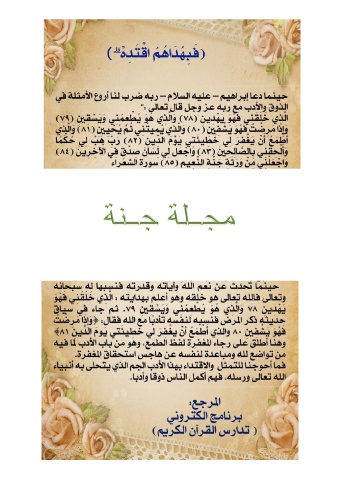 (فَبِهُدَاهُمُ اقْتَدِهْ ۗ)
حينما دعا إبراهيم – عليه السلام – ربه ضرب لنا أروع الأمثلة في
الذوق والأدب مع ربه عز وجل قال تعالى :"
الَّذِي خَلَقَنِي فَهُوَ يَهْدِينِ (٧٨) وَالَّذِي هُوَ يُطْعِمُنِي وَيَسْقِينِ (٧٩)
وَإِذَا مَرِضْتُ فَهُوَ يَشْفِينِ (٨٠) وَالَّذِي يُمِيتُنِي ثُمَّ يُحْيِينِ (٨١) وَالَّذِي
أَطْمَعُ أَنْ يَغْفِرَ لِي خَطِيئَتِي يَوْمَ الدِّينِ (٨٢) رَبِّ هَبْ لِي حُكْمًا
وَأَلْحِقْنِي بِالصَّالِحِينَ (٨٣) وَاجْعَلْ لِي لِسَانَ صِدْقٍ فِي الْآخِرِينَ (٨٤)
وَاجْعَلْنِي مِنْ وَرَثَةِ جَنَّةِ النَّعِيمِ (٨٥) سورة الشعراء
مجــلة جــنة
حينما تحدث عن نعم الله وآياته وقدرته فنسبها له سبحانه
وتعالى فالله تعالى هو خلقه وهو أعلم بهدايته ، الَّذِي خَلَقَنِي فَهُوَ
يَهْدِينِ ٧٨ وَالَّذِي هُوَ يُطْعِمُنِي وَيَسْقِينِ ٧٩، ثم جاء في سياق
حديثه ذكر المرض فنسبه لنفسه تأدبا مع الله فقال: ﴿وَإِذَا مَرِضْتُ
فَهُوَ يَشْفِينِ ٨٠ وَالَّذِي أَطْمَعُ أَنْ يَغْفِرَ لِي خَطِيئَتِي يَوْمَ الدِّينِ ٨١﴾
وهنا أطلق على رجاء المغفرة لفظ الطمع، وهو من باب الأدب لما فيه
من تواضع لله ومباعدة لنفسه عن هاجس استحقاق المغفرة.
فما أحوجنا للتمثل والاقتداء بهذا الأدب الجم الذي يتحلى به أنبياء
الله تعالى ورسله، فهم أكمل الناس ذوقا وأدبا.
المرجع:
برنامج الكتروني
( تدارس القرآن الكريم )